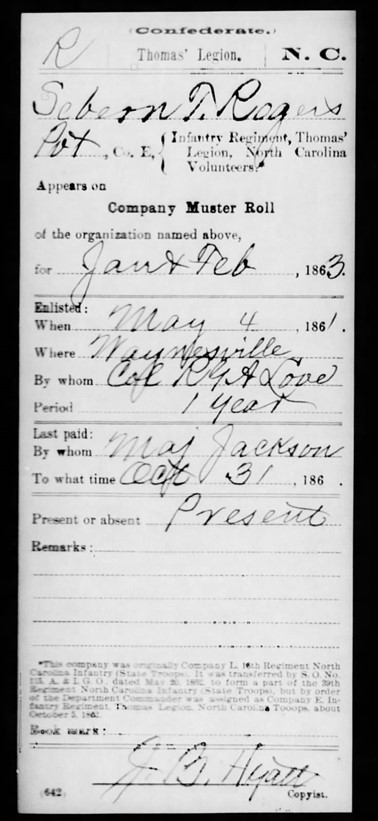 (Confederate.)
R Thomas' Legion. N. C.
Sebern T. Rogers
Pvt, Co. E, { Infantry Regiment, Thomas' Legion, North Carolina Volunteers.*
Appears on
Company Muster Roll
of the organization named above,
for Jan & Feb, 1863.
Enlisted:
When May 4, 1861.
Where Waynesville
By whom Col R G A Love
Period 1 year
Last paid:
By whom Maj Jackson
To what time Oct 31, 186 .
Present or absent Present
Remarks:
*This company was originally Company L, 16th Regiment North
Carolina Infantry (State Troops). It was transferred by S. O. No.
A. & I. G. O., dated May 20, 1862, to form a part of the 39th
Regiment North Carolina Infantry (State Troops), but by order
of the Department Commander was assigned as Company E, In-
fantry Regiment, Thomas Legion, North Carolina Troops, about
October 5, 1862.
Book mark:
J. B. Hyatt
(642) Copyist.